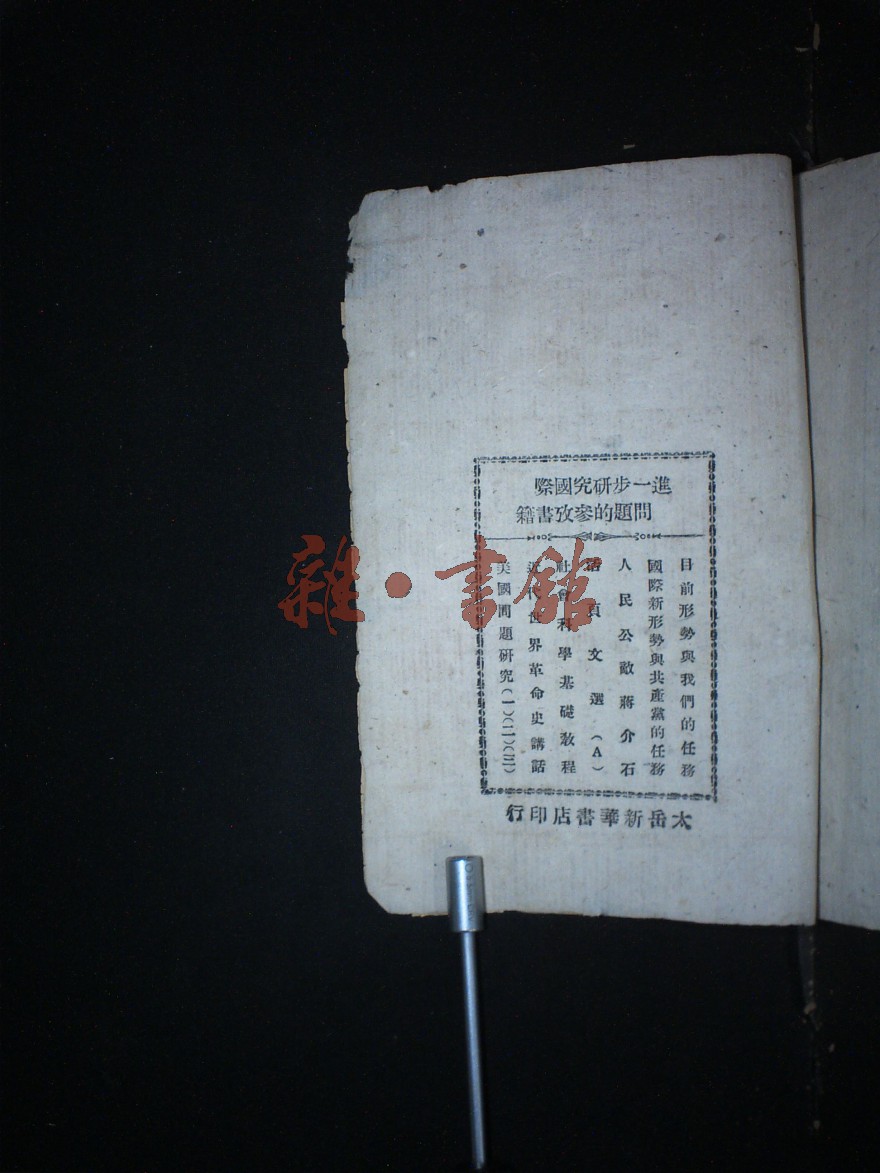 進一步研究國際
問題的參攷書籍
目前形勢與我們的任務
國際新形勢與共產黨的任務
人民公敵蔣介石
活頁文選（A）
社會科學基礎敎程
近代世界革命史講話
美國問題研究(一)(二)(三)
太岳新華書店印行
雜·書館